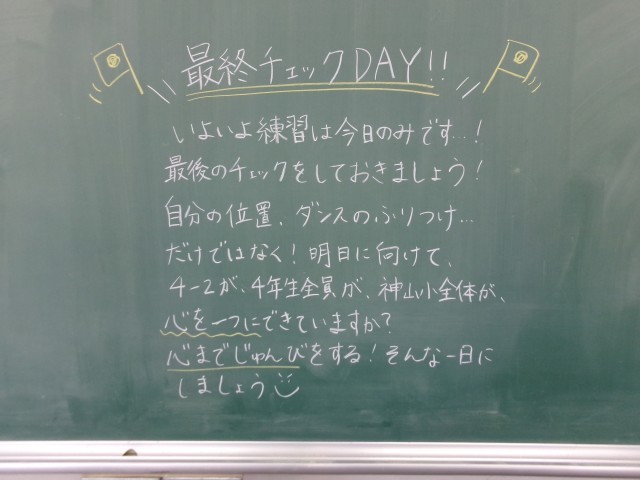 最終チェックDAY!!
いよいよ練習は今日のみです…!
最後のチェックをしておきましょう!
自分の位置、ダンスのふりつけ…
だけではなく!明日に向けて、
4-2が、4年生全員が、神山小全体が、
心を一つにできていますか?
心までじゅんびをする!そんな一日に
しましょう